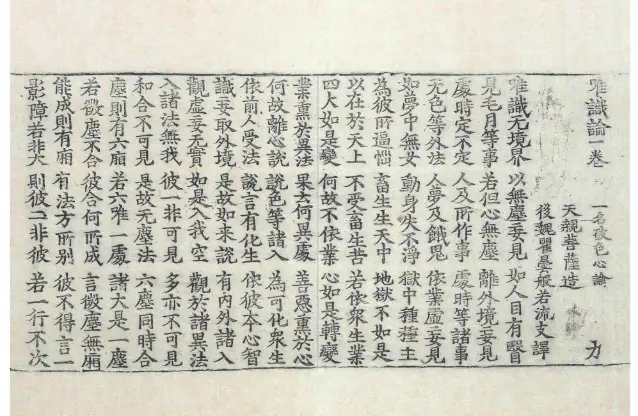 唯識論一卷 一名破色心論
天親菩薩造
後魏瞿曇般若流支譯 力
唯識无境界 以無塵妄見 如人目有瞖
見毛月等事 若但心無塵 離外境妄見
處時定不定 人及所作事 處時等諸事
无色等外法 人夢及餓鬼 依業虛妄見
如夢中無女 動身失不淨 獄中種種主
為彼所逼惱 畜生生天中 地獄不如是
以在於天上 不受畜生苦 若依衆生業
四大如是變 何故不依業 心如是轉變
業熏於異法 果云何異處 善惡熏於心
何故離心說 說色等諸入 為可化衆生
依前人受法 說言有化生 依彼本心智
識妄取外境 是故如來說 有內外諸入
觀虛妄无實 如是入我空 觀於諸異法
入諸法無我 彼一非可見 多亦不可見
和合不可見 是故无塵法 六塵同時合
塵則有六廂 若六唯一處 諸大是一塵
若微塵不合 彼合何所成 言微塵無廂
能成則有廂 有法方所別 彼不得言一
影障若非大 則彼二非彼 若一行不次